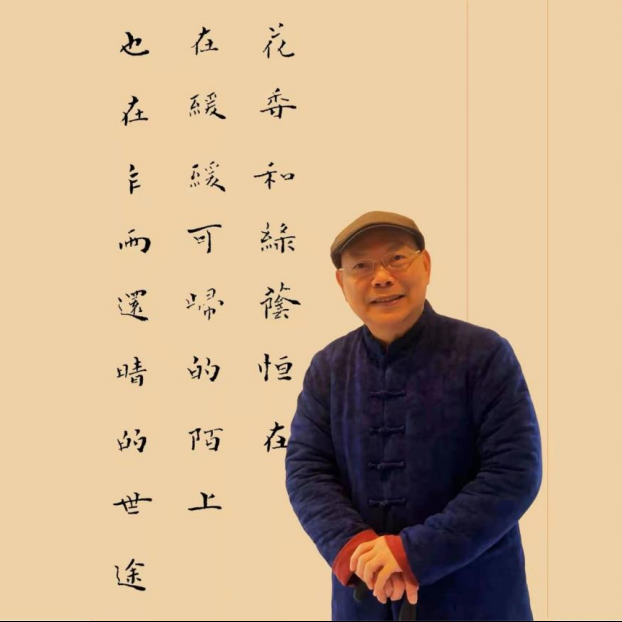 花香和綠蔭恒在
在緩緩可歸的陌上
也在乍雨還晴的世途